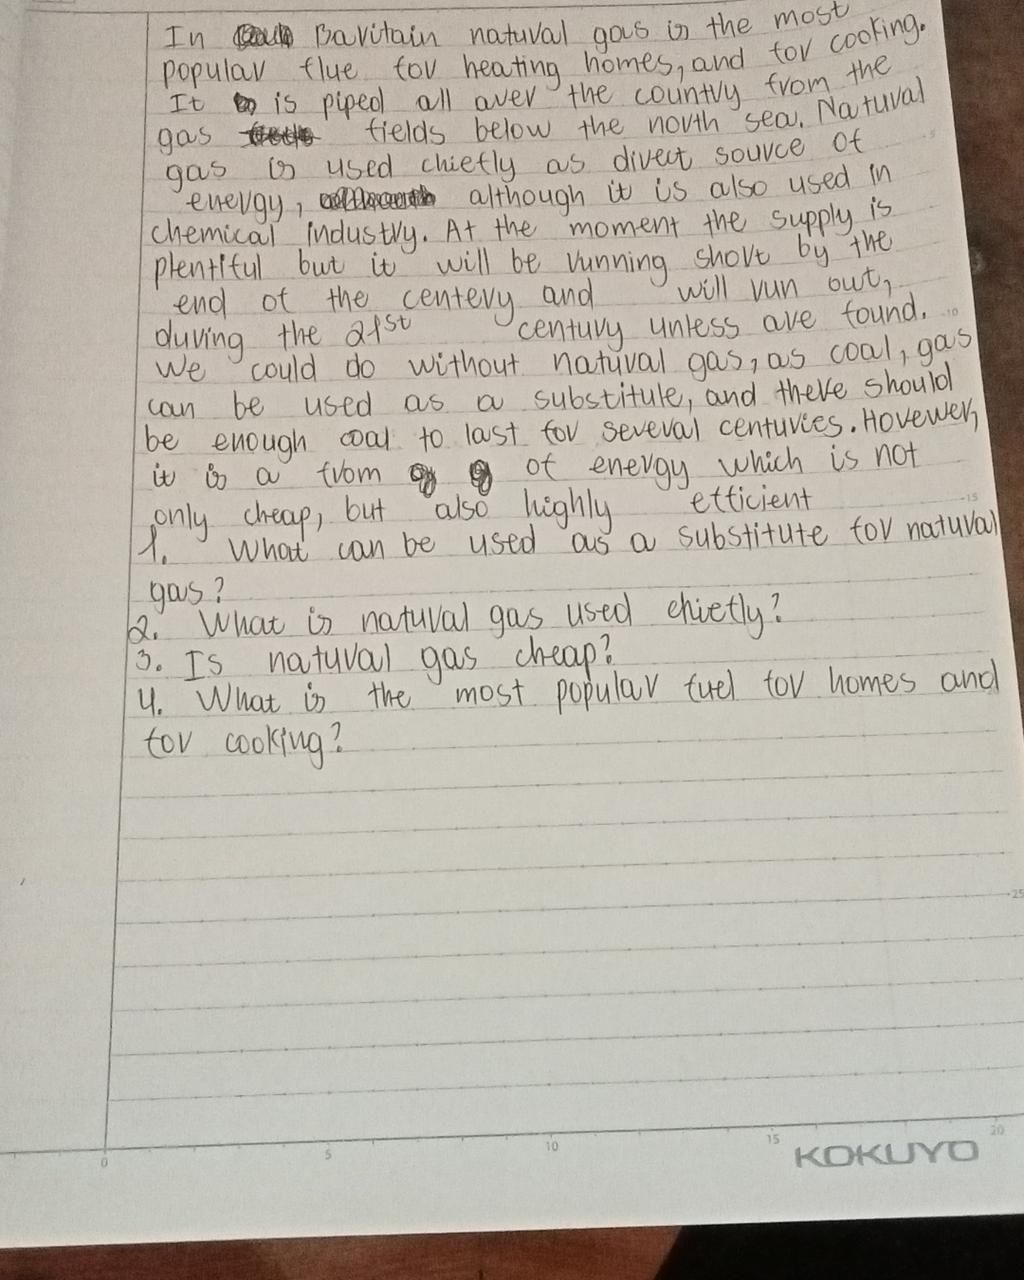 In Bavitain natural gas is the most
popular flue for heating homes, and for cooking.
It is piped all aver the country from the
gas fields below the north sea. Natural
gas is used chiefly as direct source of
energy, although it is also used in
chemical industry. At the moment the supply is
plentiful but it will be running short by the
end of the centery and will run out,
during the 21st century unless are found.
We could do without natural gas, as coal, gas
can be used as a substitule, and there should
be enough coal to last for several centuries. Hovewer,
it is a from of energy which is not
only cheap, but also highly efficient
1. What can be used as a substitute for natural
gas?
2. What is natural gas used chiefly?
3. Is natural gas cheap?
4. What is the most popular fuel for homes and
for cooking?
0 5 10 15 20
KOKUYO
10
15
25